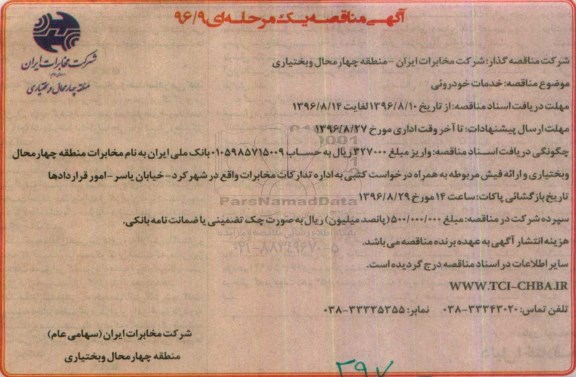 آگهی مناقصه یک مرحله‌ای ۹۶/۹
شرکت مخابرات ایران
منطقه چهارمحال و بختیاری
شرکت مناقصه گذار: شرکت مخابرات ایران - منطقه چهارمحال وبختیاری
موضوع مناقصه: خدمات خودروئی
مهلت دریافت اسناد مناقصه: از تاریخ ۱۳۹۶/۸/۱۰ لغایت ۱۳۹۶/۸/۱۴
مهلت ارسال پیشنهادات: تا آخر وقت اداری مورخ ۱۳۹۶/۸/۲۷
چگونگی دریافت اسناد مناقصه: واریز مبلغ ۳۲۷۰۰۰ ریال به حساب ۰۱۰۵۹۸۵۷۱۵۰۰۹ بانک ملی ایران به نام مخابرات منطقه چهارمحال
وبختیاری و ارائه فیش مربوطه به همراه درخواست کتبی به اداره تدارکات مخابرات واقع در شهرکرد-خیابان یاسر-امور قراردادها
تاریخ بازگشائی پاکات: ساعت ۱۴ مورخ ۱۳۹۶/۸/۲۹
ParsNamadData
سپرده شرکت در مناقصه: مبلغ ۵۰۰/۰۰۰/۰۰۰ (پانصد میلیون) ریال به صورت چک تضمینی یا ضمانت نامه بانکی.
۰۲۱-۸۸۳۴۹۶۷۰-۵
هزینه انتشار آگهی به عهده برنده مناقصه می باشد.
سایر اطلاعات در اسناد مناقصه درج گردیده است.
WWW.TCI-CHBA.IR
تلفن تماس: ۳۳۳۴۳۰۲۰-۰۳۸ نمابر: ۳۳۳۳۵۳۵۵-۰۳۸
شرکت مخابرات ایران (سهامی عام)
منطقه چهارمحال وبختیاری
۲۹۷